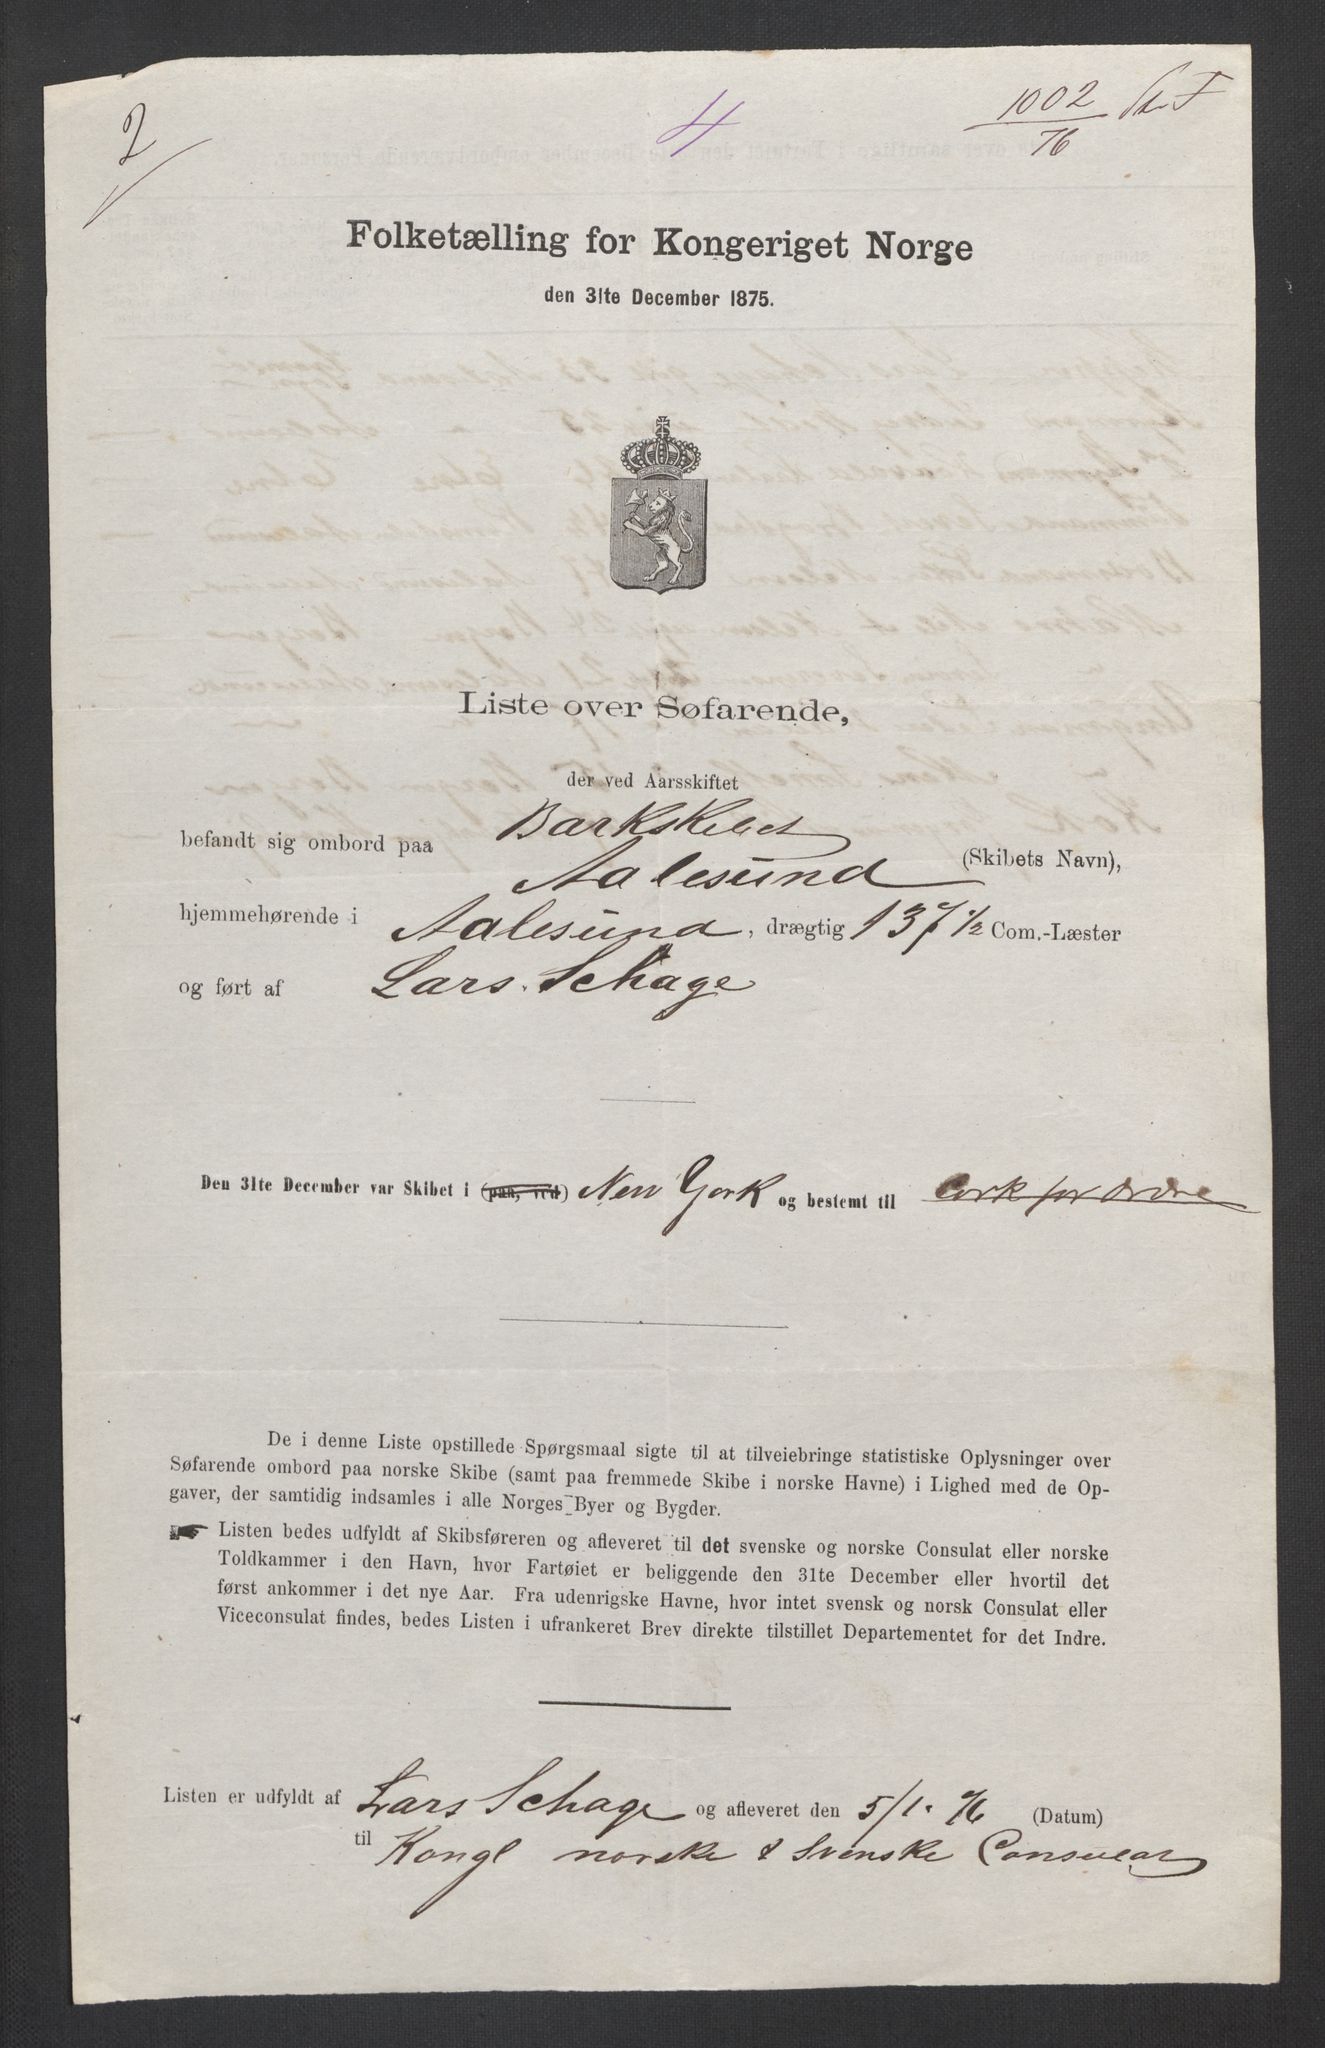 2
4
1002
76
Folketælling for Kongeriget Norge
den 31te December 1875.
Liste over Søfarende,
der ved Aarsskiftet
befandt sig ombord paa Barkskibet
Aalesund (Skibets Navn),
hjemmehørende i Aalesund, drægtig 137 1/2 Com.-Læster
og ført af Lars Schage
Den 31te December var Skibet i (paa, ved) New York og bestemt til Cork for Ordre
De i denne Liste opstillede Spørgsmaal sigte til at tilveiebringe statistiske Oplysninger over
Søfarende ombord paa norske Skibe (samt paa fremmede Skibe i norske Havne) i Lighed med de Op-
gaver, der samtidig indsamles i alle Norges Byer og Bygder.
Listen bedes udfyldt af Skibsføreren og afleveret til det svenske og norske Consulat eller norske
Toldkammer i den Havn, hvor Fartøiet er beliggende den 31te December eller hvortil det
først ankommer i det nye Aar. Fra udenrigske Havne, hvor intet svensk og norsk Consulat eller
Viceconsulat findes, bedes Listen i ufrankeret Brev direkte tilstillet Departementet for det Indre.
Listen er udfyldt af Lars Schage og afleveret den 5/1. 76 (Datum)
til Kongl norske & Svenske Consulat